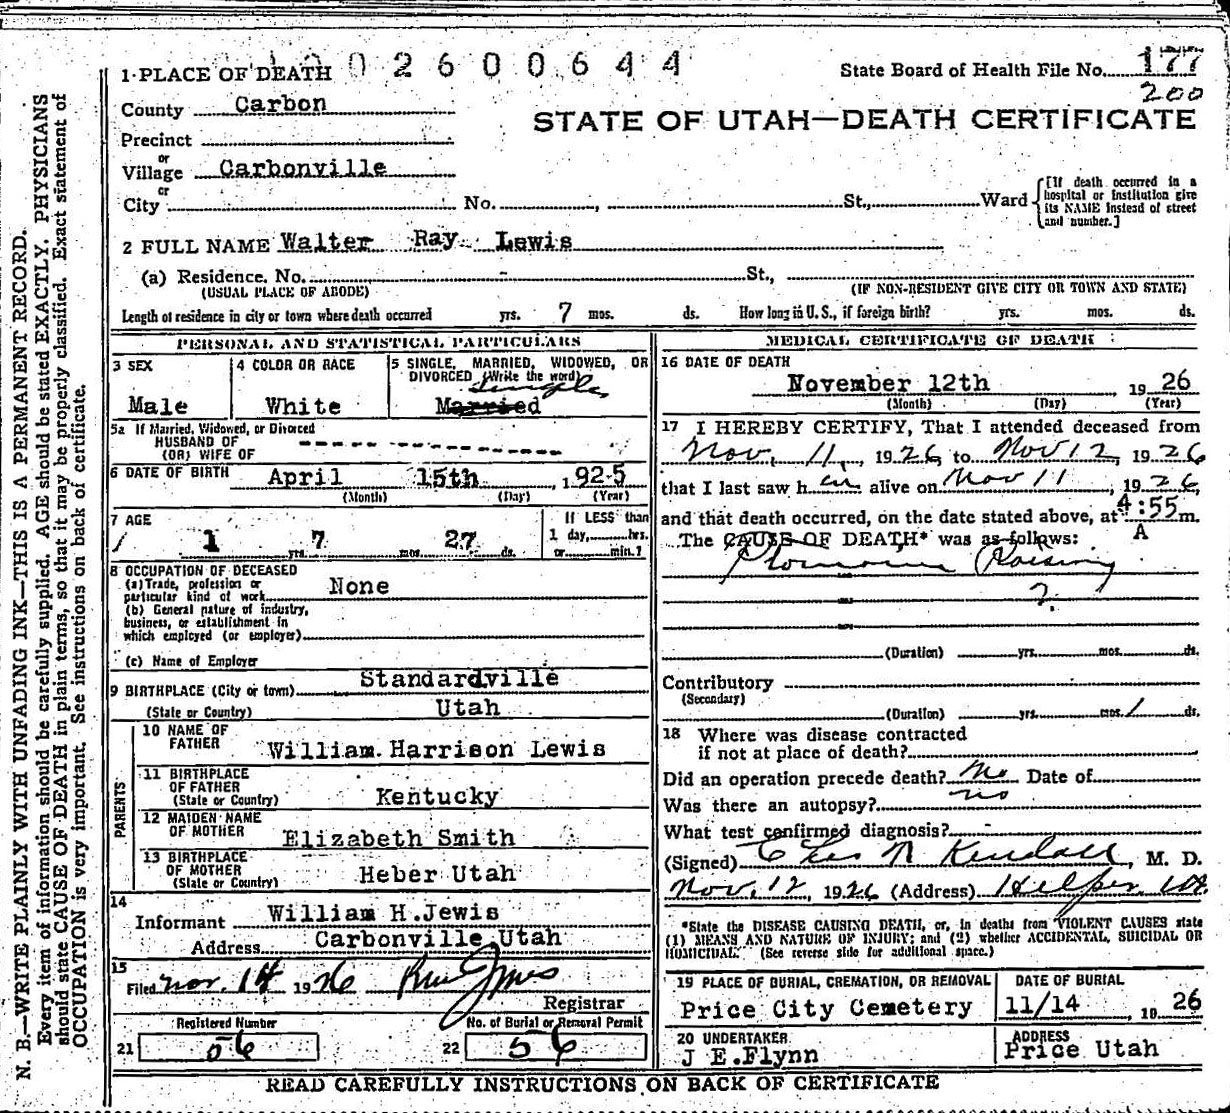 1 PLACE OF DEATH 002600644
State Board of Health File No. 177
200
County Carbon
STATE OF UTAH—DEATH CERTIFICATE
Precinct
or
Village Carbonville
or
City No. , St., Ward
[If death occurred in a hospital or institution give its NAME instead of street and number.]
2 FULL NAME Walter Ray Lewis
(a) Residence. No. - St.,
(USUAL PLACE OF ABODE) (IF NON-RESIDENT GIVE CITY OR TOWN AND STATE)
Length of residence in city or town where death occurred yrs. 7 mos. ds. How long in U. S., if foreign birth? yrs. mos. ds.
PERSONAL AND STATISTICAL PARTICULARS
3 SEX
Male
4 COLOR OR RACE
White
5 SINGLE, MARRIED, WIDOWED, OR
DIVORCED (Write the word)
Single
Married
5a If Married, Widowed, or Divorced
HUSBAND OF
(OR) WIFE OF
6 DATE OF BIRTH April 15th, 1925
(Month) (Day) (Year)
7 AGE
1 yrs. 7 mos. 27 ds.
If LESS than
1 day, hrs.
or min.?
8 OCCUPATION OF DECEASED
(a) Trade, profession or
particular kind of work None
(b) General nature of industry,
business, or establishment in
which employed (or employer)
(c) Name of Employer
9 BIRTHPLACE (City or town) Standardville
(State or Country) Utah
PARENTS
10 NAME OF
FATHER William Harrison Lewis
11 BIRTHPLACE
OF FATHER
(State or Country) Kentucky
12 MAIDEN NAME
OF MOTHER Elizabeth Smith
13 BIRTHPLACE
OF MOTHER
(State or Country) Heber Utah
14
Informant William H.Jewis
Address Carbonville,Utah
15
Filed Nov. 14 1926
Registrar
Registered Number
21 56
No. of Burial or Removal Permit
22 56
MEDICAL CERTIFICATE OF DEATH
16 DATE OF DEATH
November 12th 1926
(Month) (Day) (Year)
17 I HEREBY CERTIFY, That I attended deceased from
Nov. 11, 1926, to Nov 12, 1926
that I last saw h im alive on Nov 11, 1926,
and that death occurred, on the date stated above, at 4:55 m.
A
The CAUSE OF DEATH* was as follows:
Ptomaine Poisoning
?
(Duration) yrs. mos. ds.
Contributory
(Secondary)
(Duration) yrs. mos. 1 ds.
18 Where was disease contracted
if not at place of death?
Did an operation precede death? No Date of
Was there an autopsy? no
What test confirmed diagnosis? -
(Signed) Chas N Kendall, M. D.
Nov. 12, 1926 (Address) Helper Ut.
*State the DISEASE CAUSING DEATH, or, in deaths from VIOLENT CAUSES state
(1) MEANS AND NATURE OF INJURY; and (2) whether ACCIDENTAL, SUICIDAL OR
HOMICIDAL. (See reverse side for additional space.)
19 PLACE OF BURIAL, CREMATION, OR REMOVAL
Price City Cemetery
DATE OF BURIAL
11/14, 1926
20 UNDERTAKER
J E.Flynn
ADDRESS
Price Utah
READ CAREFULLY INSTRUCTIONS ON BACK OF CERTIFICATE
N. B.—WRITE PLAINLY WITH UNFADING INK—THIS IS A PERMANENT RECORD.
Every item of information should be carefully supplied. AGE should be stated EXACTLY. PHYSICIANS
should state CAUSE OF DEATH in plain terms, so that it may be properly classified. Exact statement of
OCCUPATION is very important. See instructions on back of certificate.